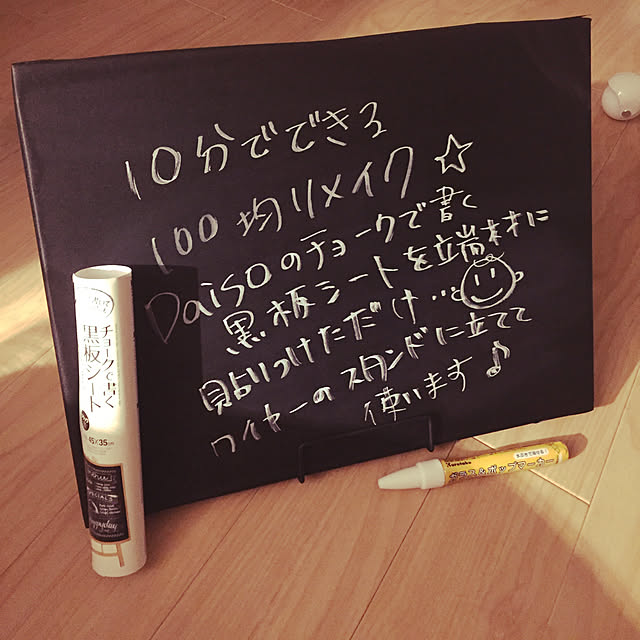 10分でできる
100均リメイク☆
Daisoのチョークで書く
黒板シートを端材に
貼りつけただけ…
ワイヤーのスタンドに立てて
使います♪
チョークで書く
黒板シート
45×35cm
Kuretake
ガラス&ポップマーカー